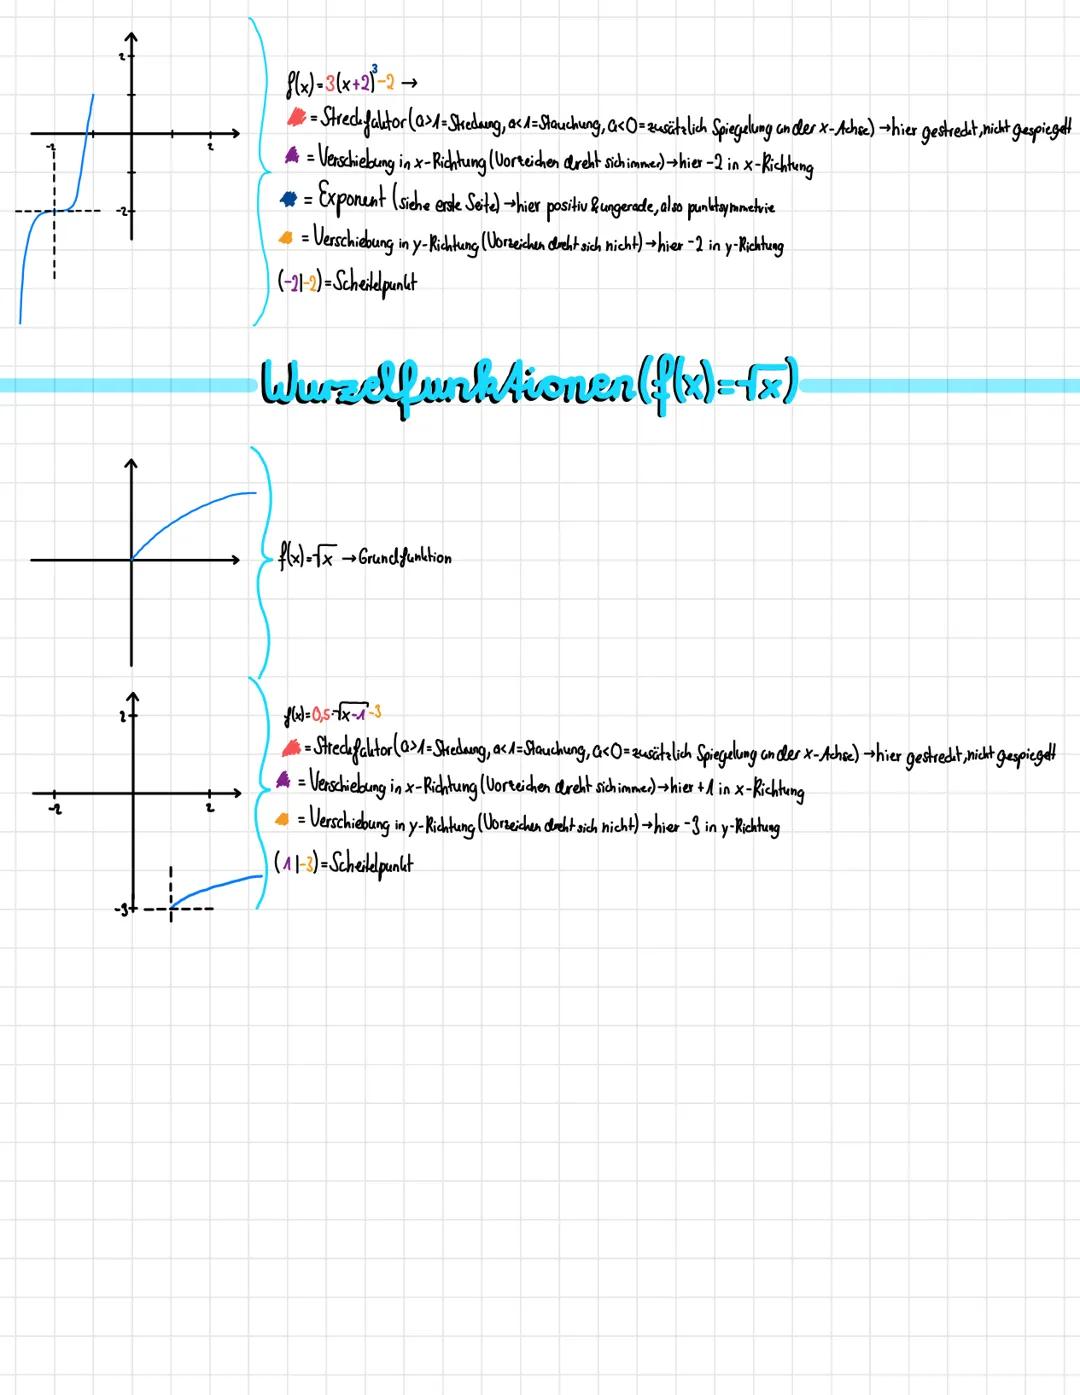 2
-2
2
-2
f(x)=3(x+2)³-2 →
= Streckfaktor (a>1=Streckung, a<1=Stauchung, a<0=zusätzlich Spiegelung an der x-Achse) →hier gestreckt, nicht gespiegelt
= Verschiebung in x-Richtung (Vorzeichen dreht sich immer) →hier -2 in x-Richtung
= Exponent (siehe erste Seite) →hier positiv & ungerade, also punktsymmetrie
= Verschiebung in y-Richtung (Vorzeichen dreht sich nicht) →hier -2 in y-Richtung
(-2|-2)=Scheitelpunkt
Wurzelfunktionen (f(x)=√x)
f(x)=√x →Grundfunktion
2
-2
2
-3
f(x)=0,5·√x-1-3
= Streckfaktor (a>1=Streckung, a<1=Stauchung, a<0=zusätzlich Spiegelung an der x-Achse) →hier gestreckt, nicht gespiegelt
= Verschiebung in x-Richtung (Vorzeichen dreht sich immer) →hier +1 in x-Richtung
= Verschiebung in y-Richtung (Vorzeichen dreht sich nicht) →hier -3 in y-Richtung
(1|-3)=Scheitelpunkt